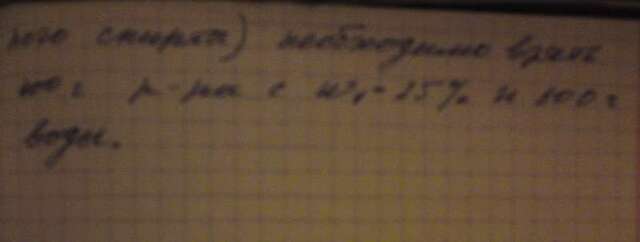 ного спирта) необходимо взять
100 г р-ра с w₁=25% и 100 г
воды.